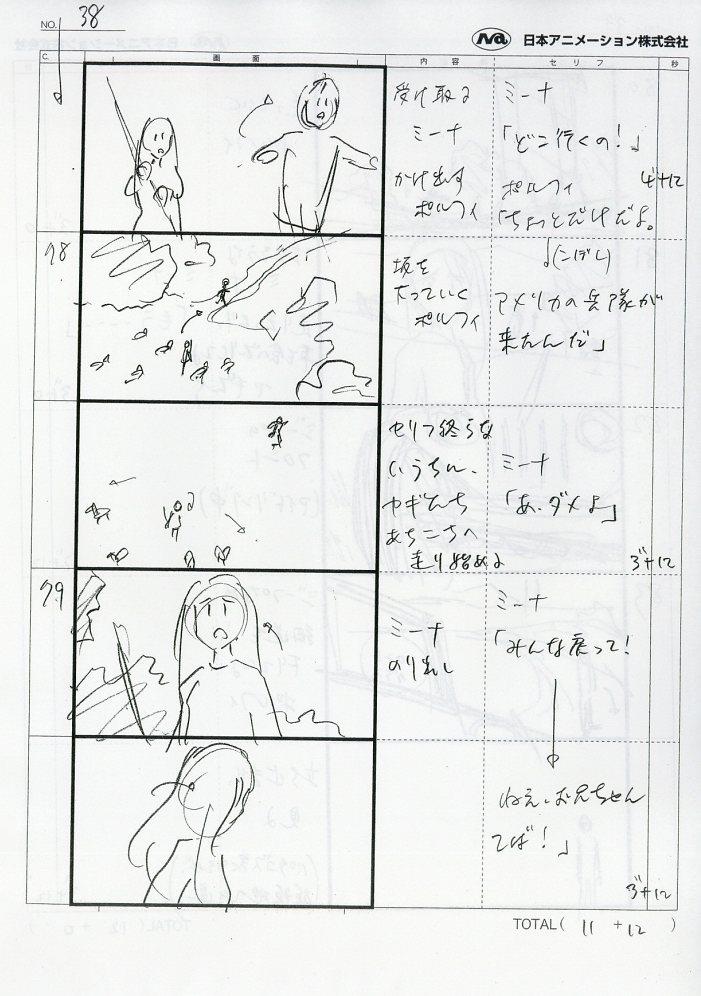 NO. 38
日本アニメーション株式会社
C. 画面 内容 セリフ 秒
受け取る
ミーナ
かけ出す
ポルフィ
ミーナ
「どこ行くの!」
ポルフィ
「ちょっとだけだよ。
4+12
78
坂を
下っていく
ポルフィ
(こぼし)
アメリカの兵隊が
来たんだ」
セリフ終らな
いうちに、
ヤギたち
あちこちへ
走り始める
ミーナ
「あ、ダメよ」
3+12
79
ミーナ
のり出し
ミーナ
「みんな戻って!
ねえ、お兄ちゃん
てば!」
3+12
TOTAL( 11 + 12 )